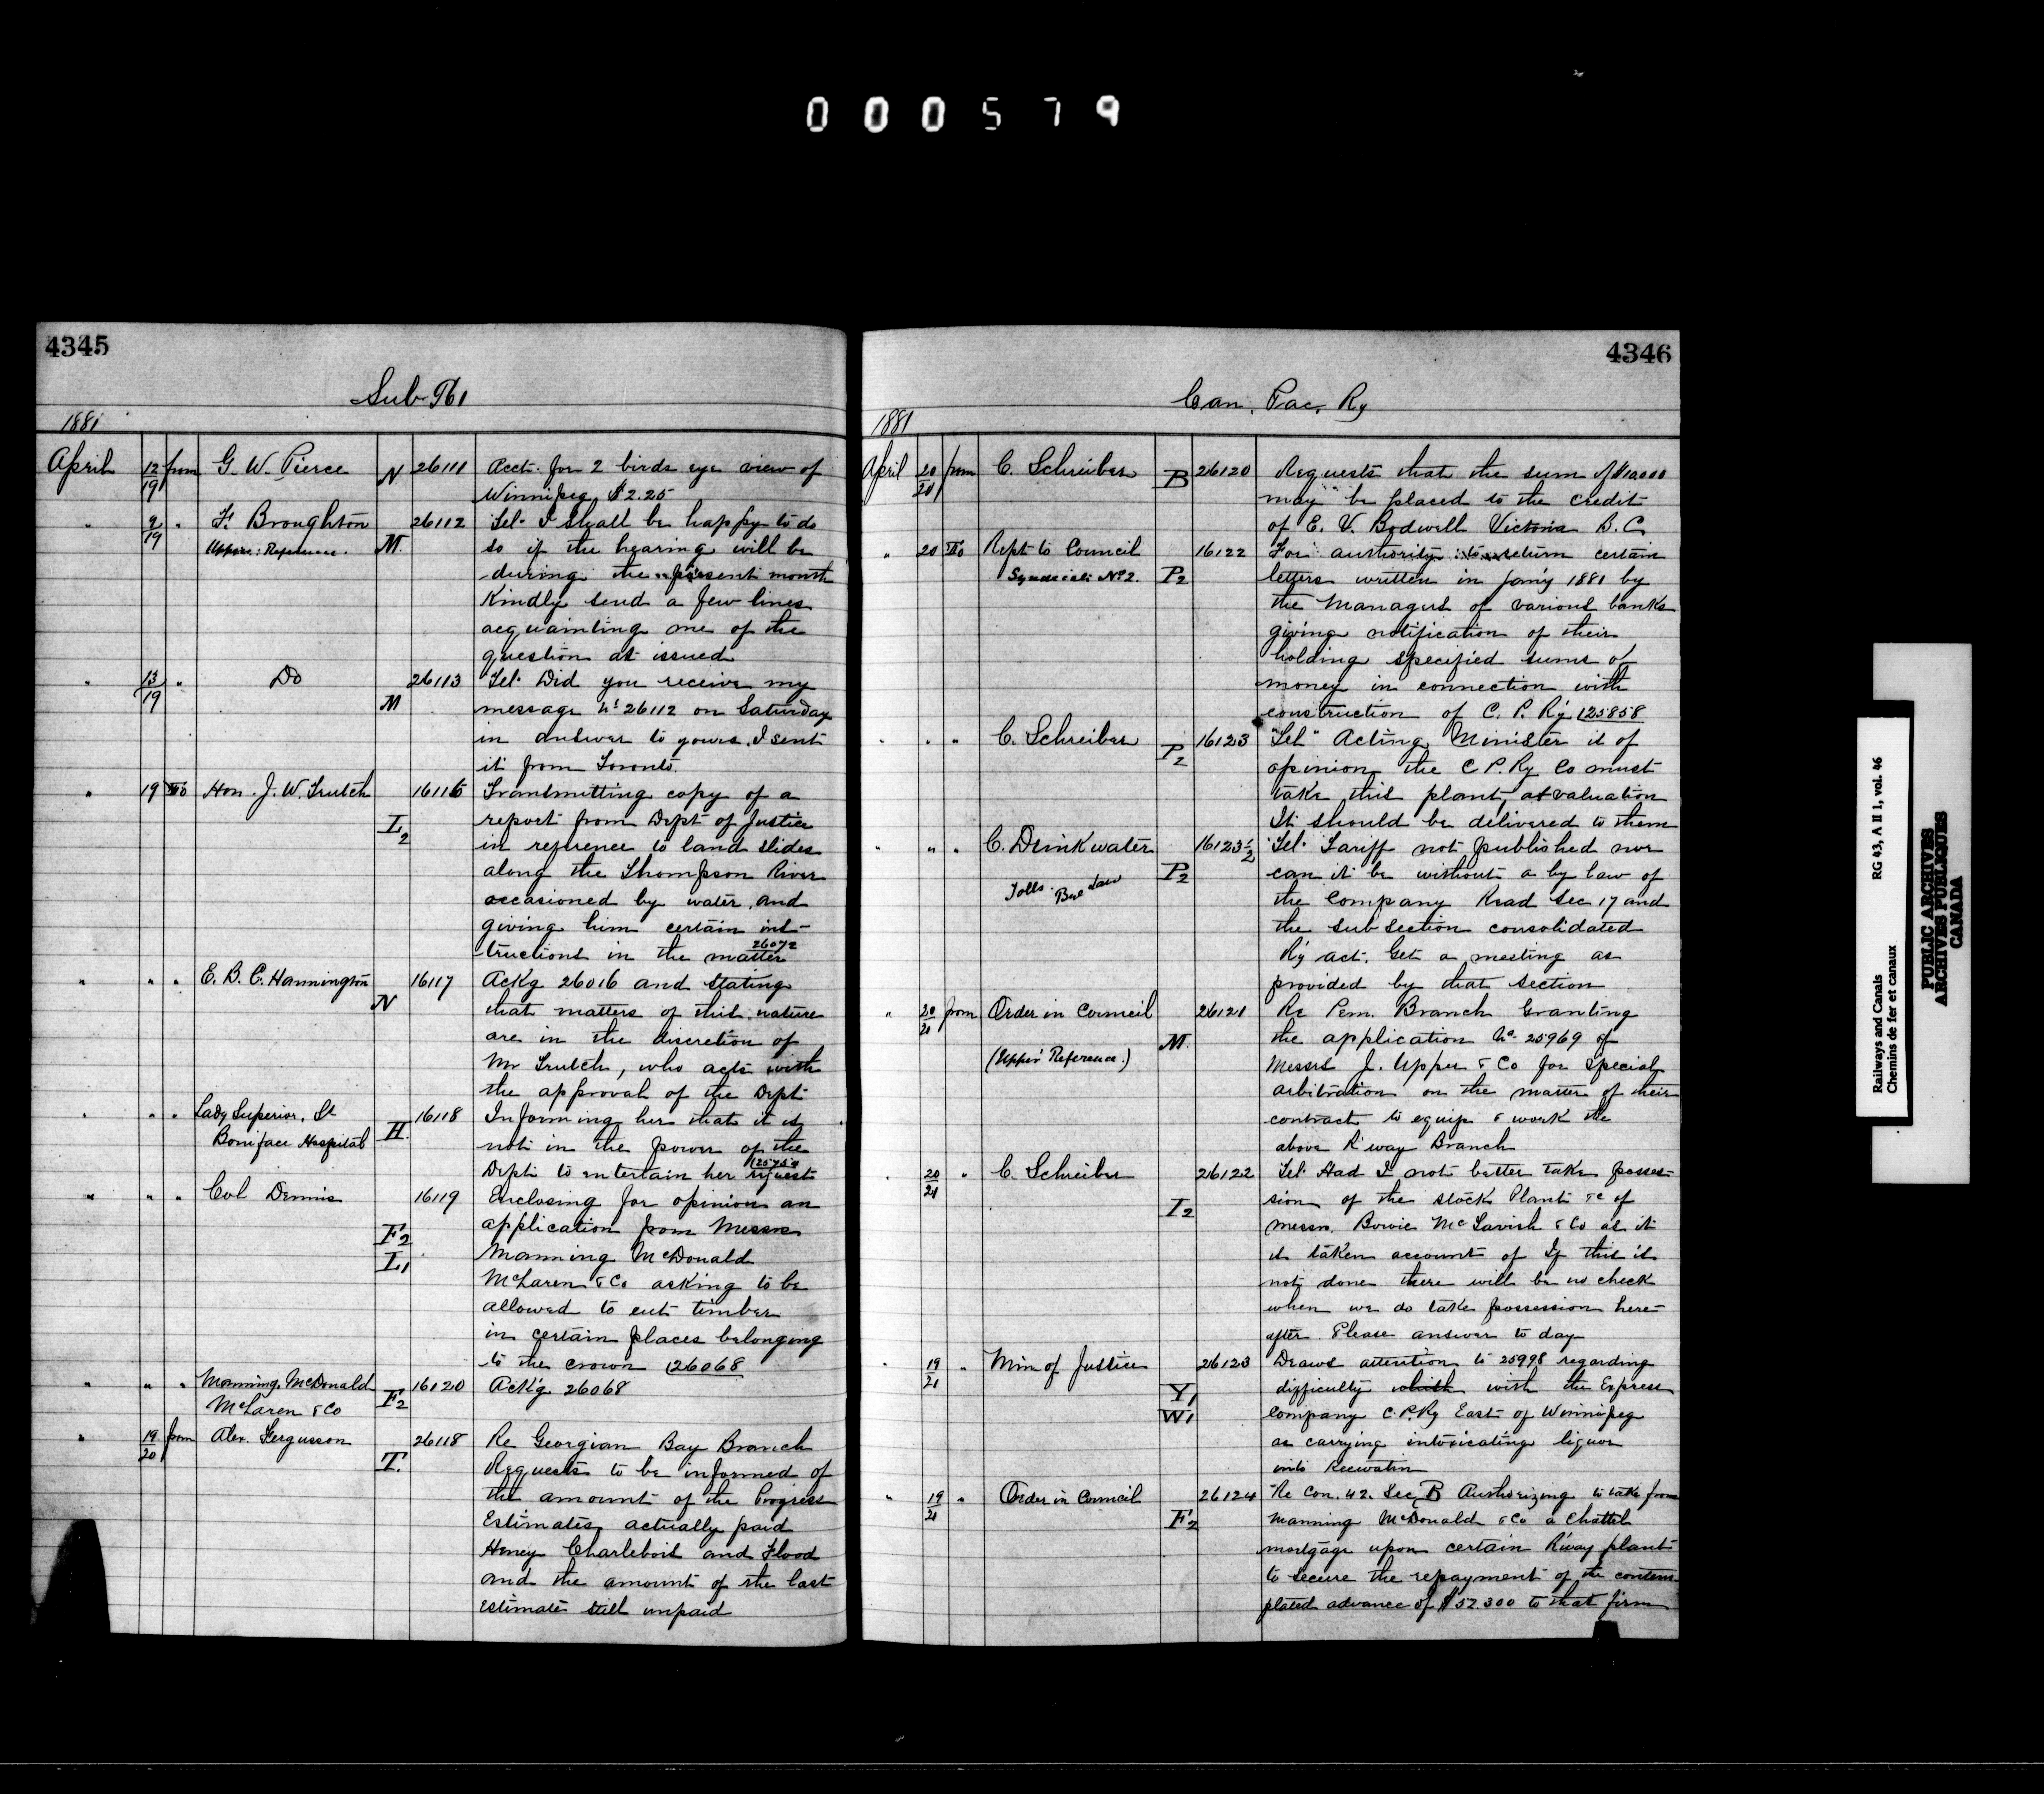 000579
4345
Sub
1881
April 12/19 from G. W. Pierce N 26111 Acct. for 2 birds eye view of
Winnipeg $2.25
" 9/19 " F. Broughton 26112 Tel. I shall be happy to do
Upper: Reference. M. so if the hearing will be
during the present month
Kindly send a few lines
acquainting me of the
question at issued
" 13/19 " Do 26113 Tel. Did you receive my
M message No 26112 on Saturday
in answer to yours. I sent
it from Toronto.
" 19 To Hon. J. W. Trutch 16116 Transmitting copy of a
I2 report from Dept of Justice
in reference to land slides
along the Thompson River
occasioned by water and
giving him certain ins-
tructions in the matter 26072
" " " E. B. C. Hannington 16117 Ackg 26016 and stating
N that matters of this nature
are in the discretion of
Mr Trutch, who acts with
the approval of the Dept
" " " Lady Superior, St 16118 Informing her that it is
Boniface Hospital H. not in the power of the
Dept to entertain her request
" " " Col Dennis 16119 Enclosing for opinion an
F2 application from Messrs
L1 Manning McDonald
McLaren & Co asking to be
allowed to cut timber
in certain places belonging
to the crown (26068
" " " Manning, McDonald 16120 Ack'g 26068
McLaren & Co F2
" 19/20 from Alex. Fergusson 26118 Re Georgian Bay Branch
T. Requests to be informed of
the amount of the Progress
Estimates actually paid
Heney Charlebois and Flood
and the amount of the last
estimate still unpaid
4346
Can. Pac. Ry
1881
April 20/20 from C. Schreiber B 26120 Requests that the sum of $10,000
may be placed to the credit
of E. V. Bodwell Victoria B. C.
" 20 To Rept to Council 16122 For authority to return certain
Syndicate No 2. P2 letters written in Jan'y 1881 by
the Managers of various banks
giving notification of their
holding specified sums of
money in connection with
construction of C. P. R'y (25858
" " " C. Schreiber P2 16123 "Tel" Acting Minister is of
opinion the C P. Ry Co must
take this plant at valuation
It should be delivered to them
" " " C. Drinkwater 16123½ Tel. Tariff not published nor
P2 can it be without a by law of
Tolls. Bye Law the Company Read Sec 17 and
the sub section consolidated
R'y act. Get a meeting as
provided by that section
" 20/21 from Order in Council 26121 Re Pem. Branch Granting
M. the application No 25969 of
(Upper Reference.) Messrs J. Upper & Co for special
arbitration on the matter of their
contract to equip & work the
above R'way Branch
" 20/21 " C. Schreiber 26122 Tel. Had I not better take posses-
I2 sion of the stock Plant &c of
messrs. Bowie McTavish & Co as it
is taken account of If this is
not done there will be no check
when we do take possession here-
after. Please answer to day
" 19/21 " Min of Justice 26123 Draws attention to 25998 regarding
Y1 difficulty which with the Express
W1 Company C. P. Ry East of Winnipeg
as carrying intoxicating liquor
into Keewatin
" 19/21 " Order in Council 26124 Re Con. 42. Sec B Authorizing to take from
F2 Manning McDonald & Co a Chattel
mortgage upon certain R'way plant
to secure the repayment of the contem-
plated advance of $52.300 to that firm
Railways and Canals RG 43, A II 1, vol. 46
Chemins de fer et canaux
PUBLIC ARCHIVES
ARCHIVES PUBLIQUES
CANADA